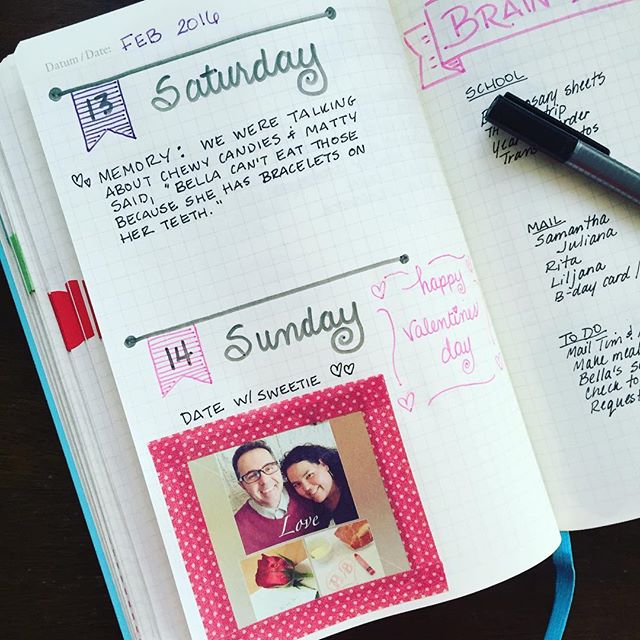 Datum / Date: FEB 2016
Saturday
13
MEMORY: WE WERE TALKING
ABOUT CHEWY CANDIES & MATTY
SAID, "BELLA CAN'T EAT THOSE
BECAUSE SHE HAS BRACELETS ON
HER TEETH."
Sunday
14
happy
Valentines
day
DATE W/ SWEETIE
Love
BRAIN
SCHOOL
sheets
MAIL
Samantha
Juliana
Rita
Liljana
B-day card
TO DO
Mail Tim &
Make
Bella's
check to
Request